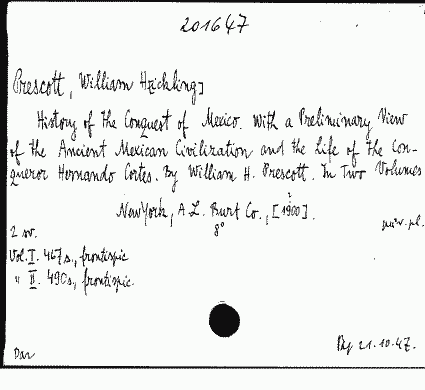 201647
Prescott, William H[ickling]
History of the Conquest of Mexico. With a Preliminary View
of the Ancient Mexican Civilization and the Life of the Con-
queror Hernando Cortes. By William H. Prescott. In Two Volumes
New York, A. L. Burt Co., [1900].
8°
2 sv.
Vol. I. 467 s., frontispic
" II. 490 s., frontispic.
Dar
21.10.47.